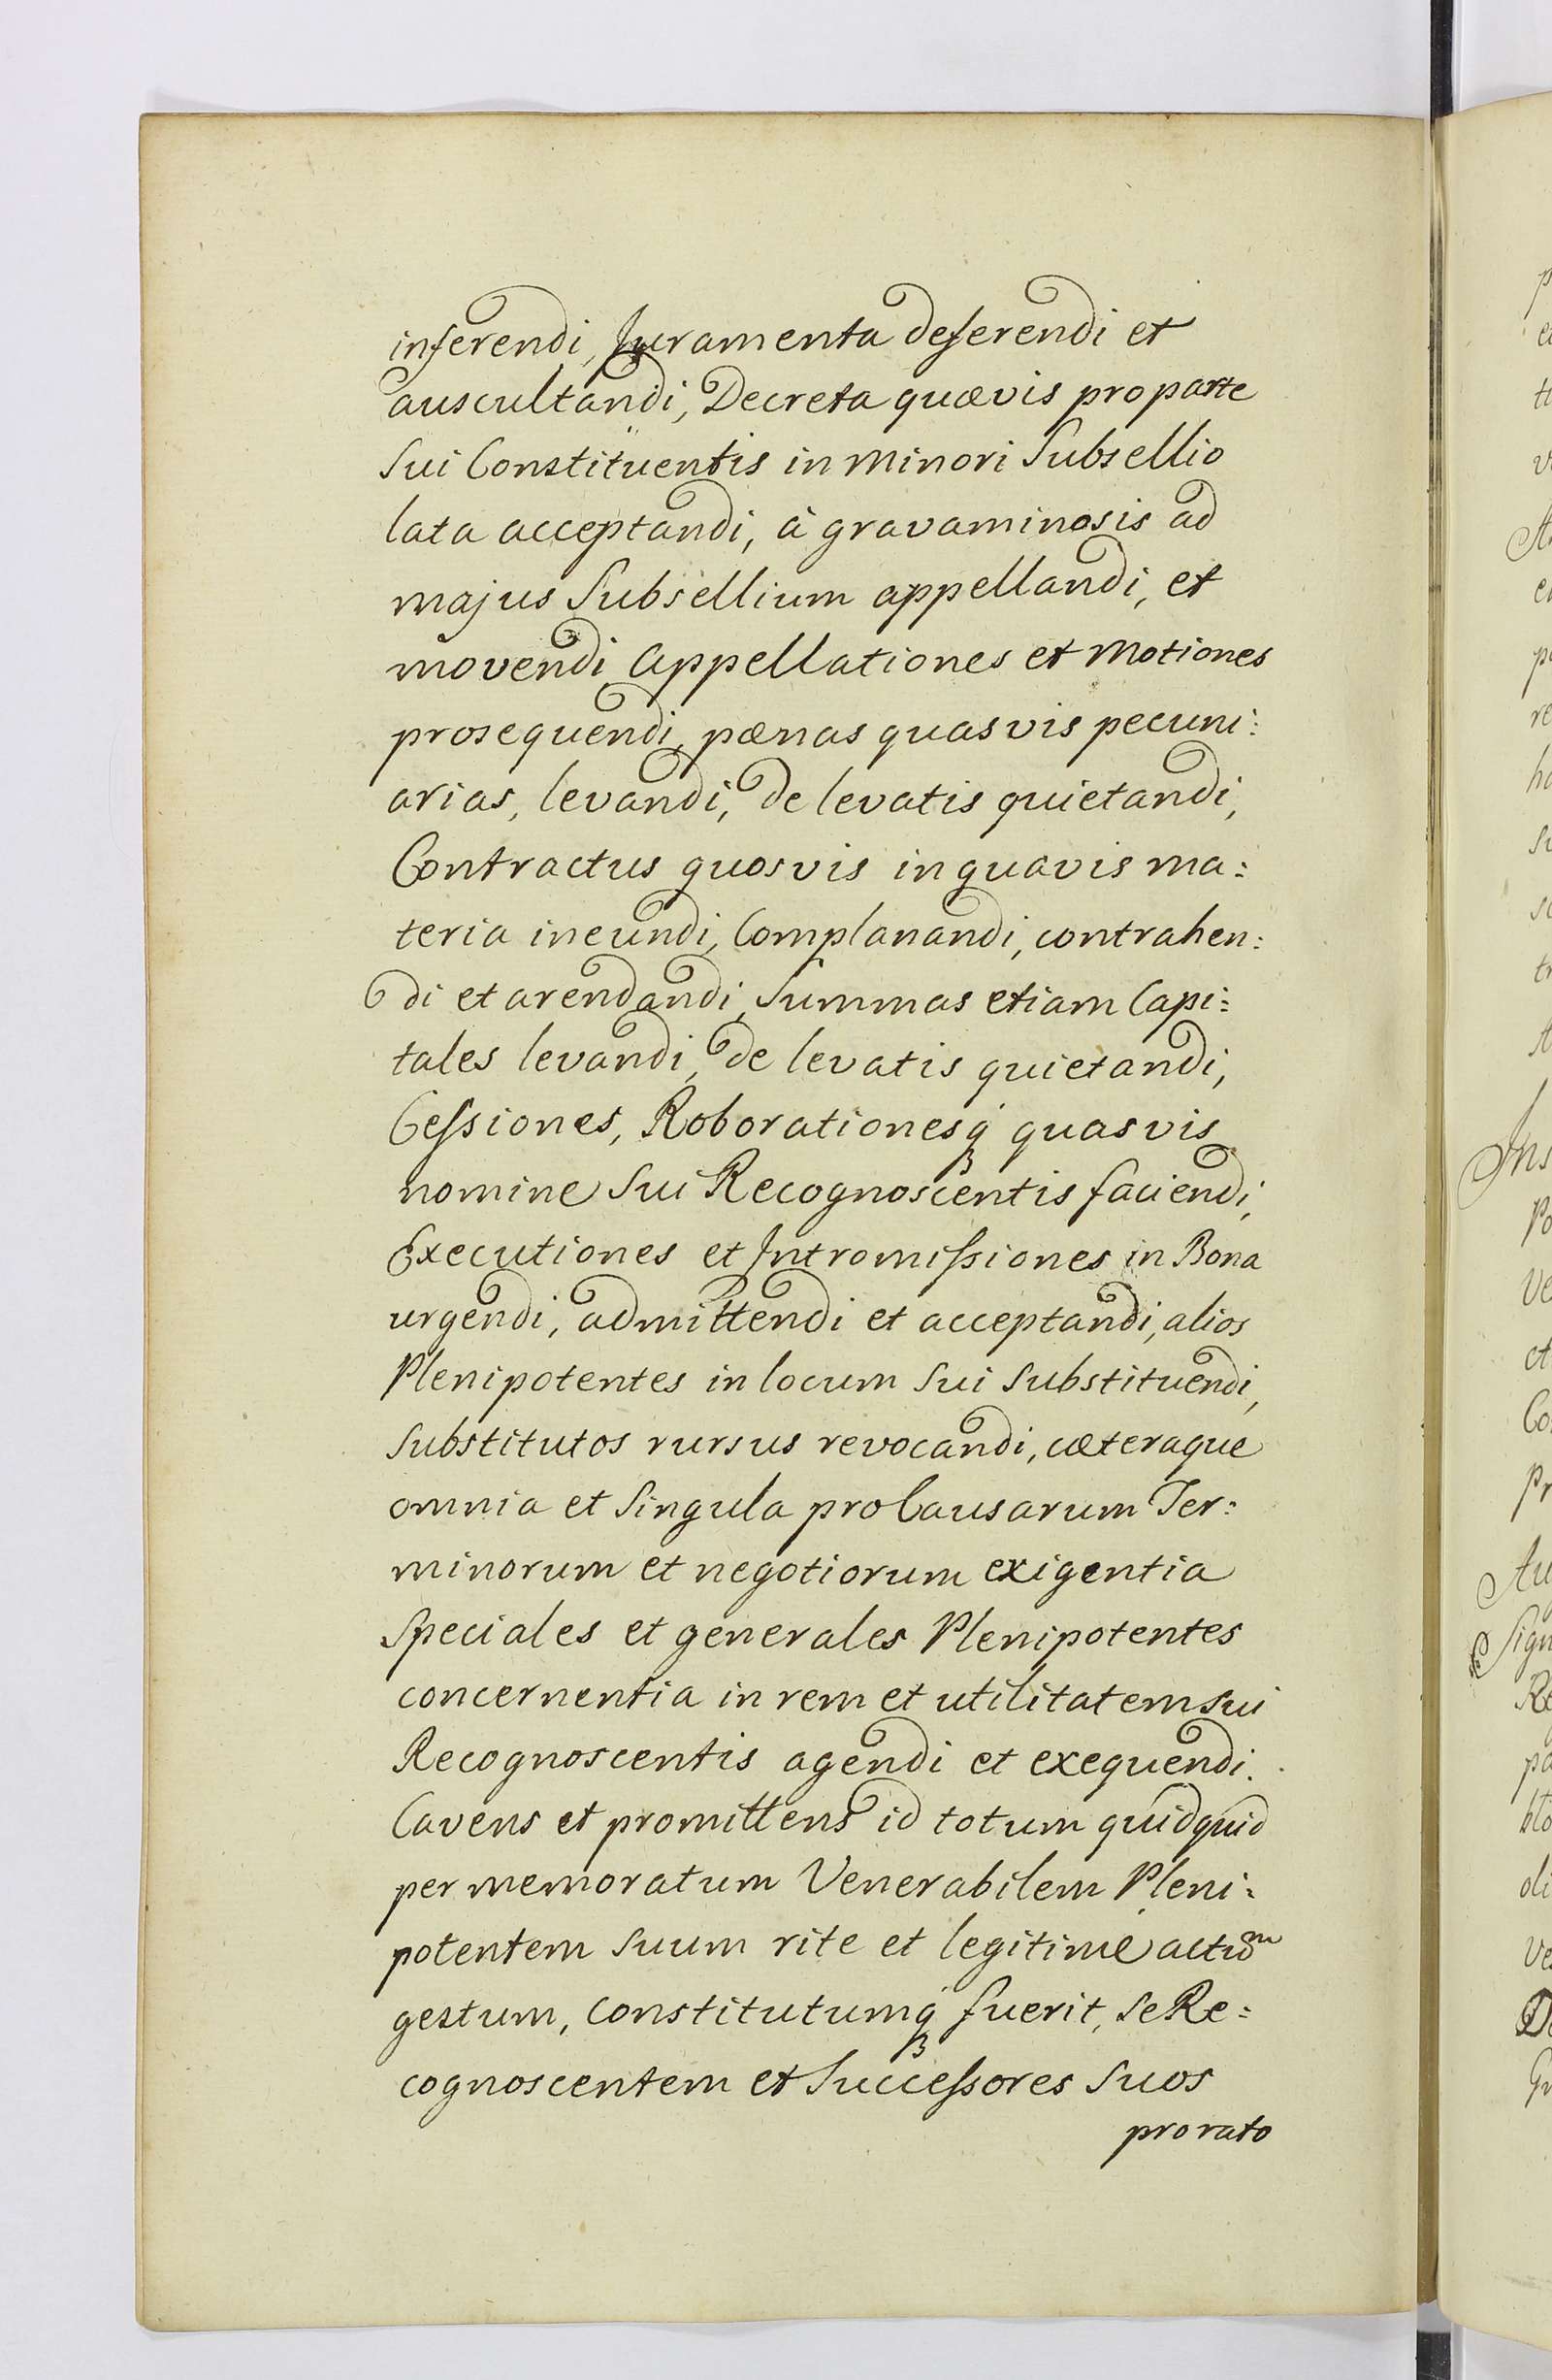 inferendi, Juramenta deferendi et
auscultandi, Decreta quævis pro parte
Sui Constituentis in minori Subsellio
lata acceptandi, à gravaminosis ad
majus Subsellium appellandi, et
movendi Appellationes et Motiones
prosequendi, pœnas quasvis pecuni:
arias, levandi, de levatis quietandi,
Contractus quosvis in quavis ma:
teria ineundi, Complanandi, contrahen:
di et arendandi, Summas etiam Capi:
tales levandi, de levatis quietandi,
Ceſsiones, Roborationesq́ꝫ quasvis
nomine Sui Recognoscentis faciendi,
Executiones et Intromiſsiones in Bona
urgendi, admittendi et acceptandi, alios
Plenipotentes in locum Sui Substituendi,
Substitutos rursus revocandi, cæteraque
omnia et Singula pro Causarum Ter:
minorum et negotiorum exigentia
Speciales et generales Plenipotentes
concernentia in rem et utilitatem Sui
Recognoscentis agendi et exequendi.
Cavens et promittens id totum quidquid
per memoratum Venerabilem Pleni:
potentem Suum rite et legitime actuᵐ
gestum, Constitutumq́ꝫ fuerit, Se Re:
cognoscentem et Succeſsores Suos
pro rato